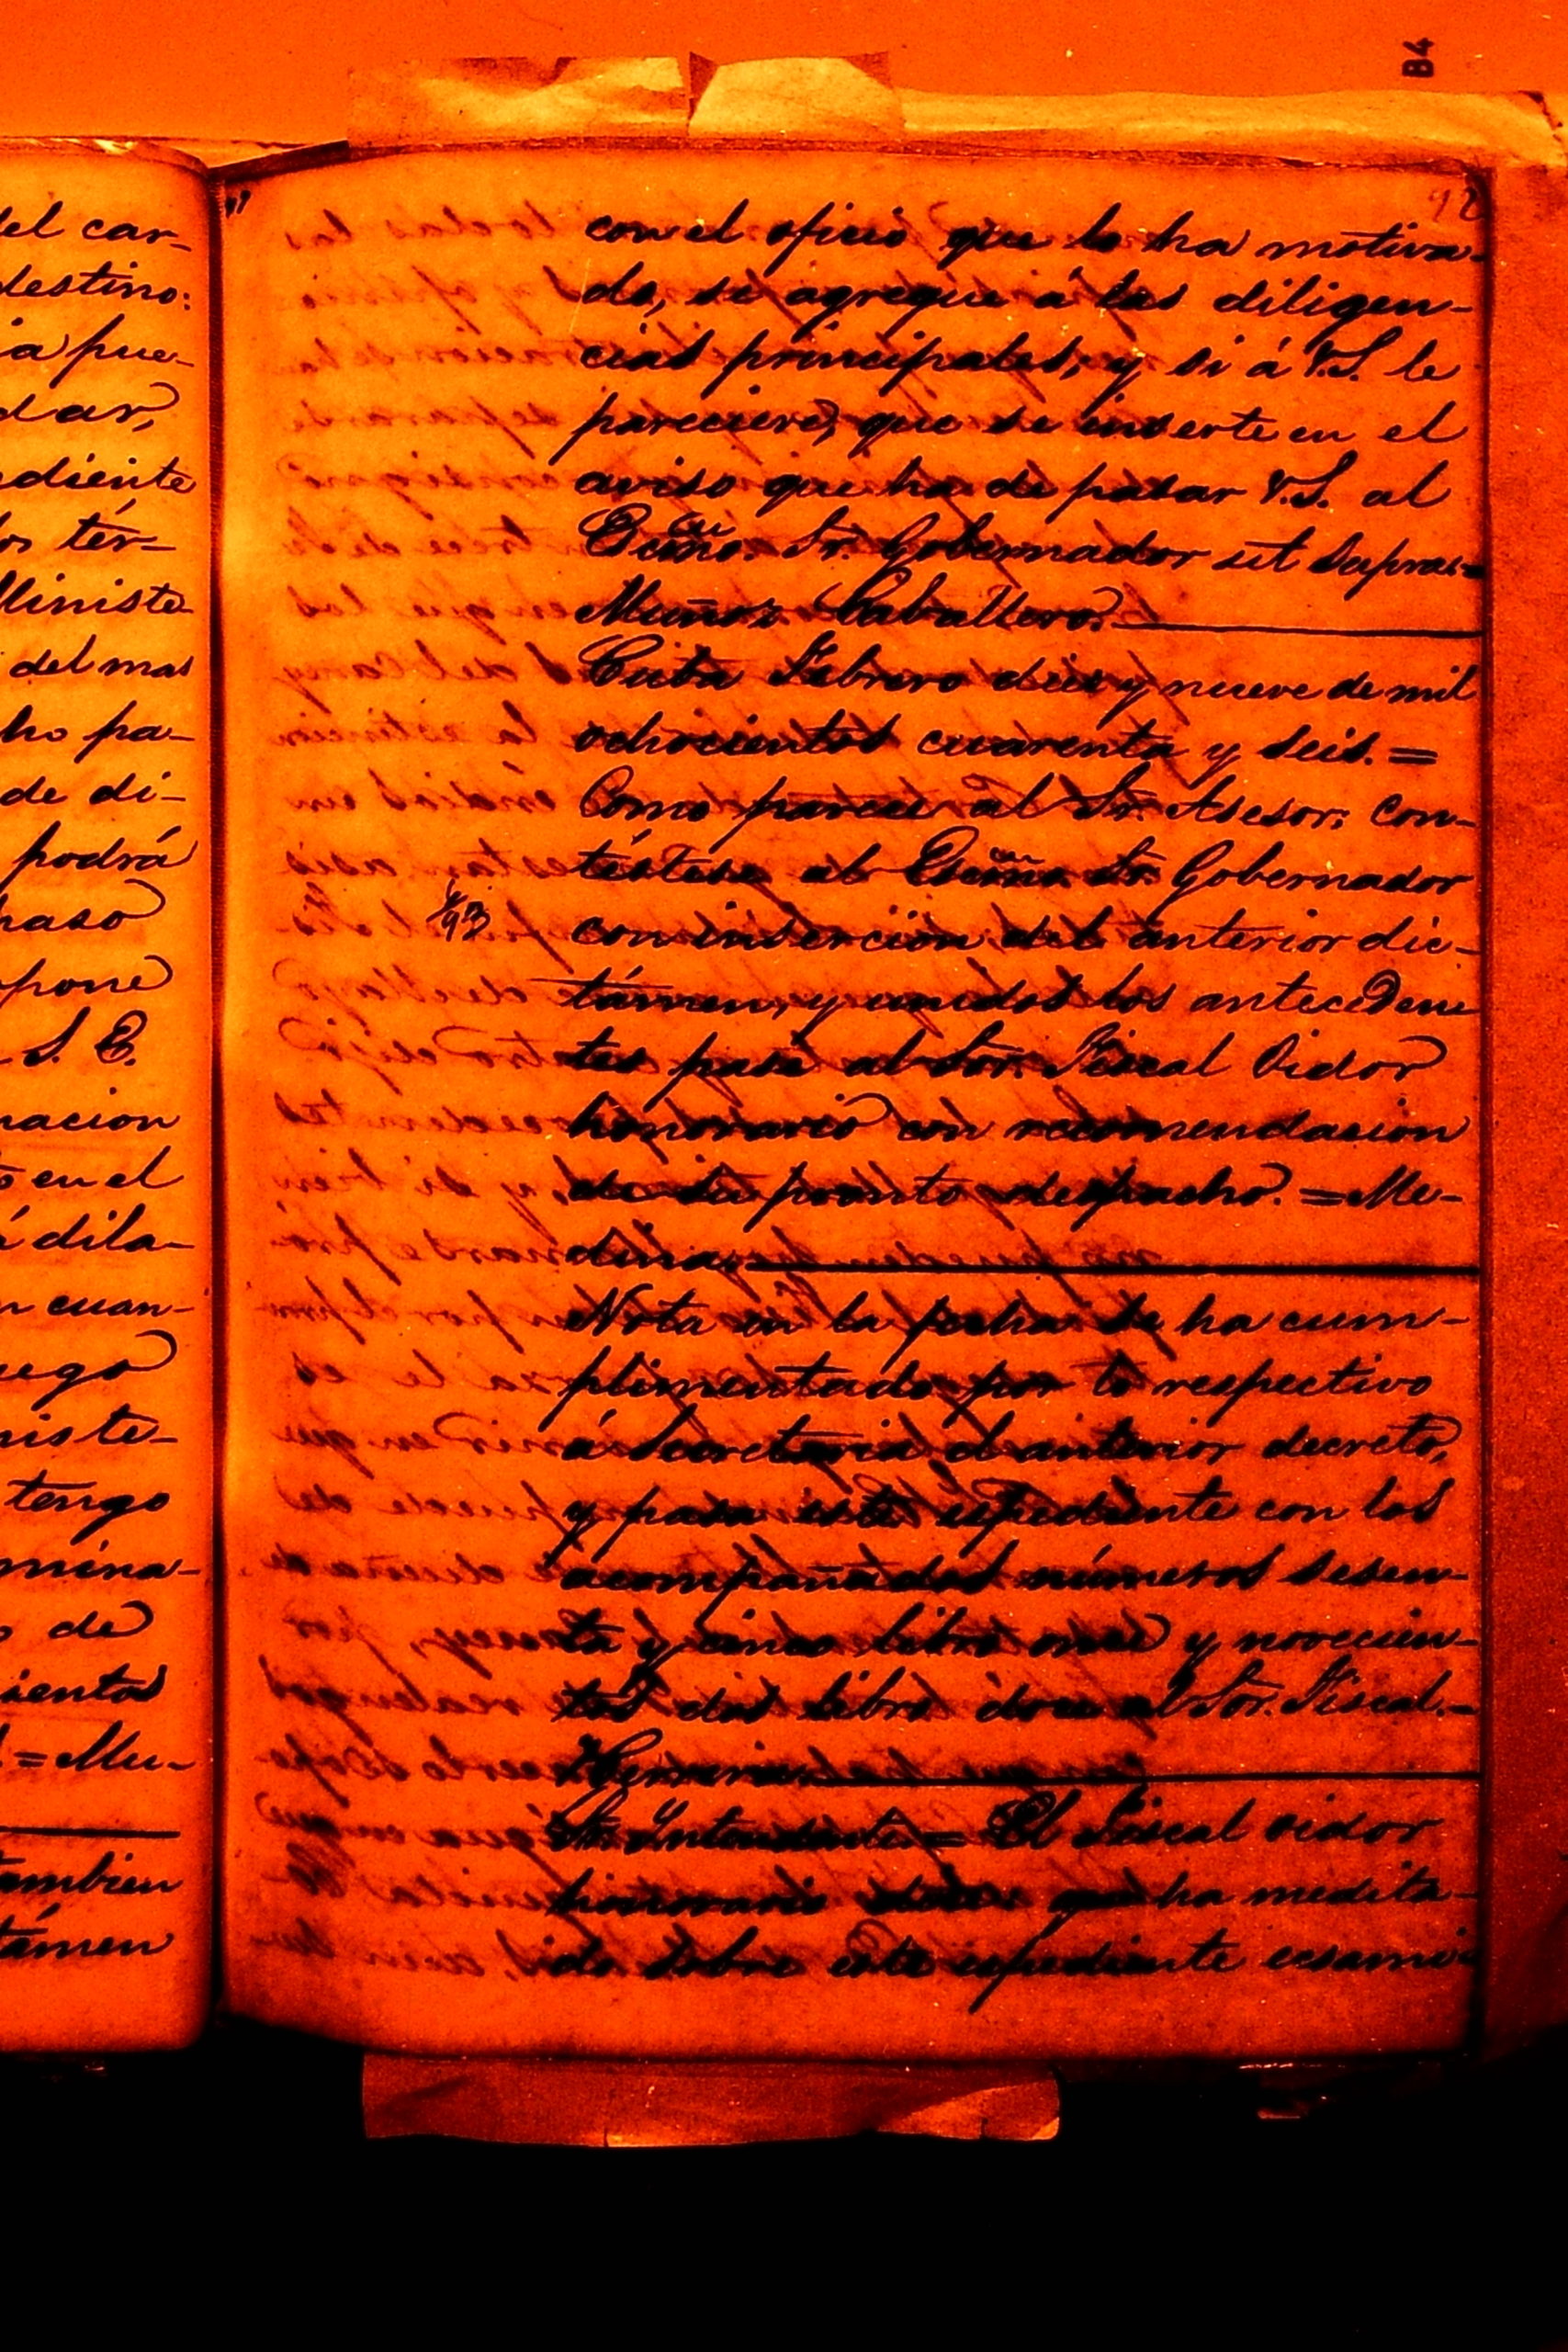 B4
92
del car-
destino:
ia pue-
dar,
ediente
os tér-
Ministe
del mas
ho pa-
de di-
podrá
paso
pone
S. E.
nacion
o en el
á dila-
n cuan-
uego
niste-
tengo
mina-
o de
ientos
= Mu-
tambien
támen
con el oficio que lo ha motiva-
do, se agregue á las diligen-
cias principales, y si á V.S. le
pareciere, que se inserte en el
aviso que ha de pasar V.S. al
Ecsmo. Sr. Gobernador ut supra=
Muñoz Caballero.
Cuba Febrero diez y nueve de mil
ochocientos cuarenta y seis. =
Como parece al Sr. Asesor; con-
téstese al Ecsmo. Sr. Gobernador
con insercion del anterior dic-
támen, y unidos los anteceden
tes pase al Sor. Fiscal Oidor
honorario con recomendacion
de su pronto despacho. = Me-
dina.
Nota en la fecha se ha cum-
plimentado por lo respectivo
á Secretaria el anterior decreto,
y pasa este espediente con los
acompañados números sesen-
ta y cinco libro once y novecien-
tos dos libro doce al Sor. Fiscal.=
Herrera.
Sr. Intendente = El Fiscal oidor
honorario dice: que ha medita-
do sobre este espediente ecsami-